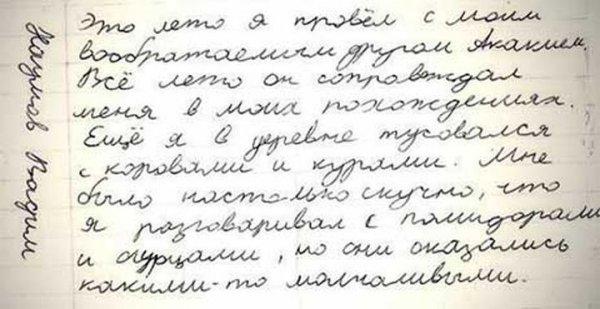 Наумов Вадим
Это лето я провёл с моим
вообратаемым другом Акакием.
Всё лето он сопровждал
меня в моих похождениях.
Ещё я в деревне тусовался
с коровами и курами. Мне
было настолько скучно, что
я разговаривал с помидорами
и огурцами, но они оказались
какими-то молчаливыми.